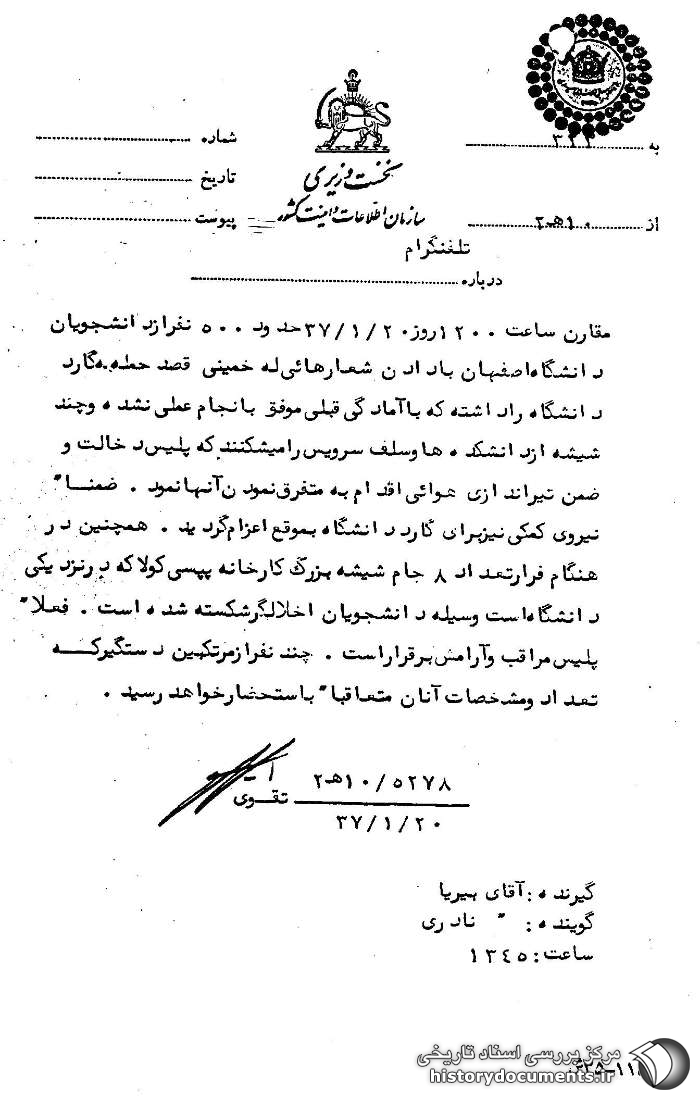 به ۳۲۲
شماره
نخست وزیری
تاریخ
سازمان اطلاعات و امنیت کشور
از ۱۰هـ۲
پیوست
تلفنگرام
درباره
مقارن ساعت ۱۲۰۰ روز ۳۷/۱/۲۰ حدود ۵۰۰ نفر از دانشجویان
دانشگاه اصفهان با دادن شعارهائی له خمینی قصد حمله به گارد
دانشگاه را داشته که با آمادگی قبلی موفق بانجام عملی نشده و چند
شیشه از دانشکده ها و سلف سرویس را میشکنند که پلیس دخالت و
ضمن تیراندازی هوائی اقدام به متفرق نمودن آنها نمود . ضمنا"
نیروی کمکی نیز برای گارد دانشگاه بموقع اعزام گردید . همچنین در
هنگام فرار تعداد ۸ جام شیشه بزرگ کارخانه پپسی کولا که در نزدیکی
دانشگاه است وسیله دانشجویان اخلالگر شکسته شده است . فعلا"
پلیس مراقب و آرامش برقرار است . چند نفر از مرتکبین دستگیر کـــه
تعداد و مشخصات آنان متعاقبا" باستحضار خواهد رسید .
۱۰/۵۲۷۸هـ۲
تقـوی
۳۷/۱/۲۰
گیرنده : آقای بیریا
گوینده : " نادری
ساعت : ۱۳۴۵
مرکز بررسی اسناد تاریخی
historydocuments.ir